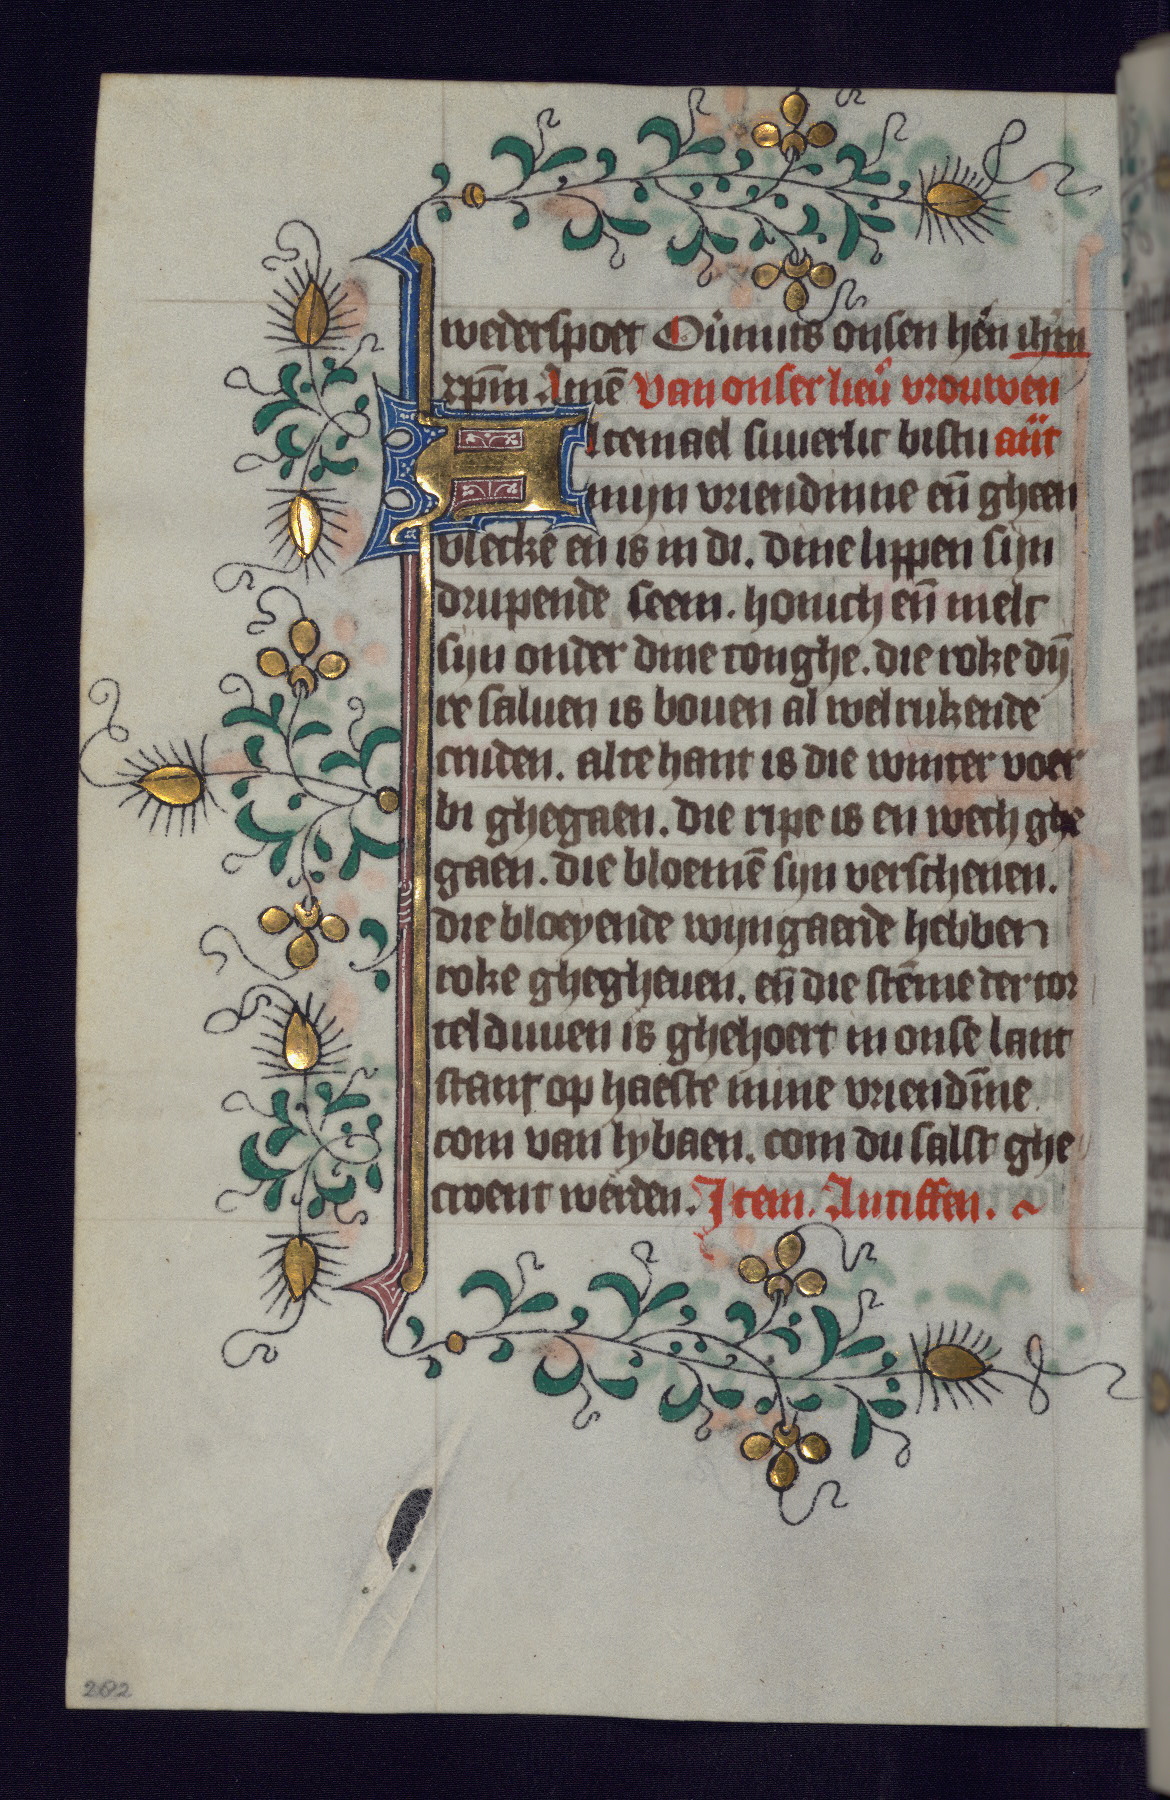 wederspoet Oūmits onsen hēn ihm
xpm̄ Amē Van onser lieū vrouwen
Altemael suuerlic bistu
mijn vriendinne eñ gheen
vlecke en is in di. dine lippen sijn
drupende seem. honich eñ melc
sijn onder dine tonghe. die roke dÿ
re saluen is bouen al wel rukende
cruden. altehant is die winter voer
bi ghegaen. die ripe is en wech ghe
gaen. die bloemē sijn verschenen.
die bloeyende wijngaerde hebben
roke ghegheuen. eñ die stēme der tor
tel duuen is ghehoert in onse lant
stant op haeste mine vriendīne
com van lybaen. com du salst ghe
croent werden. Item. Antiffen.
202